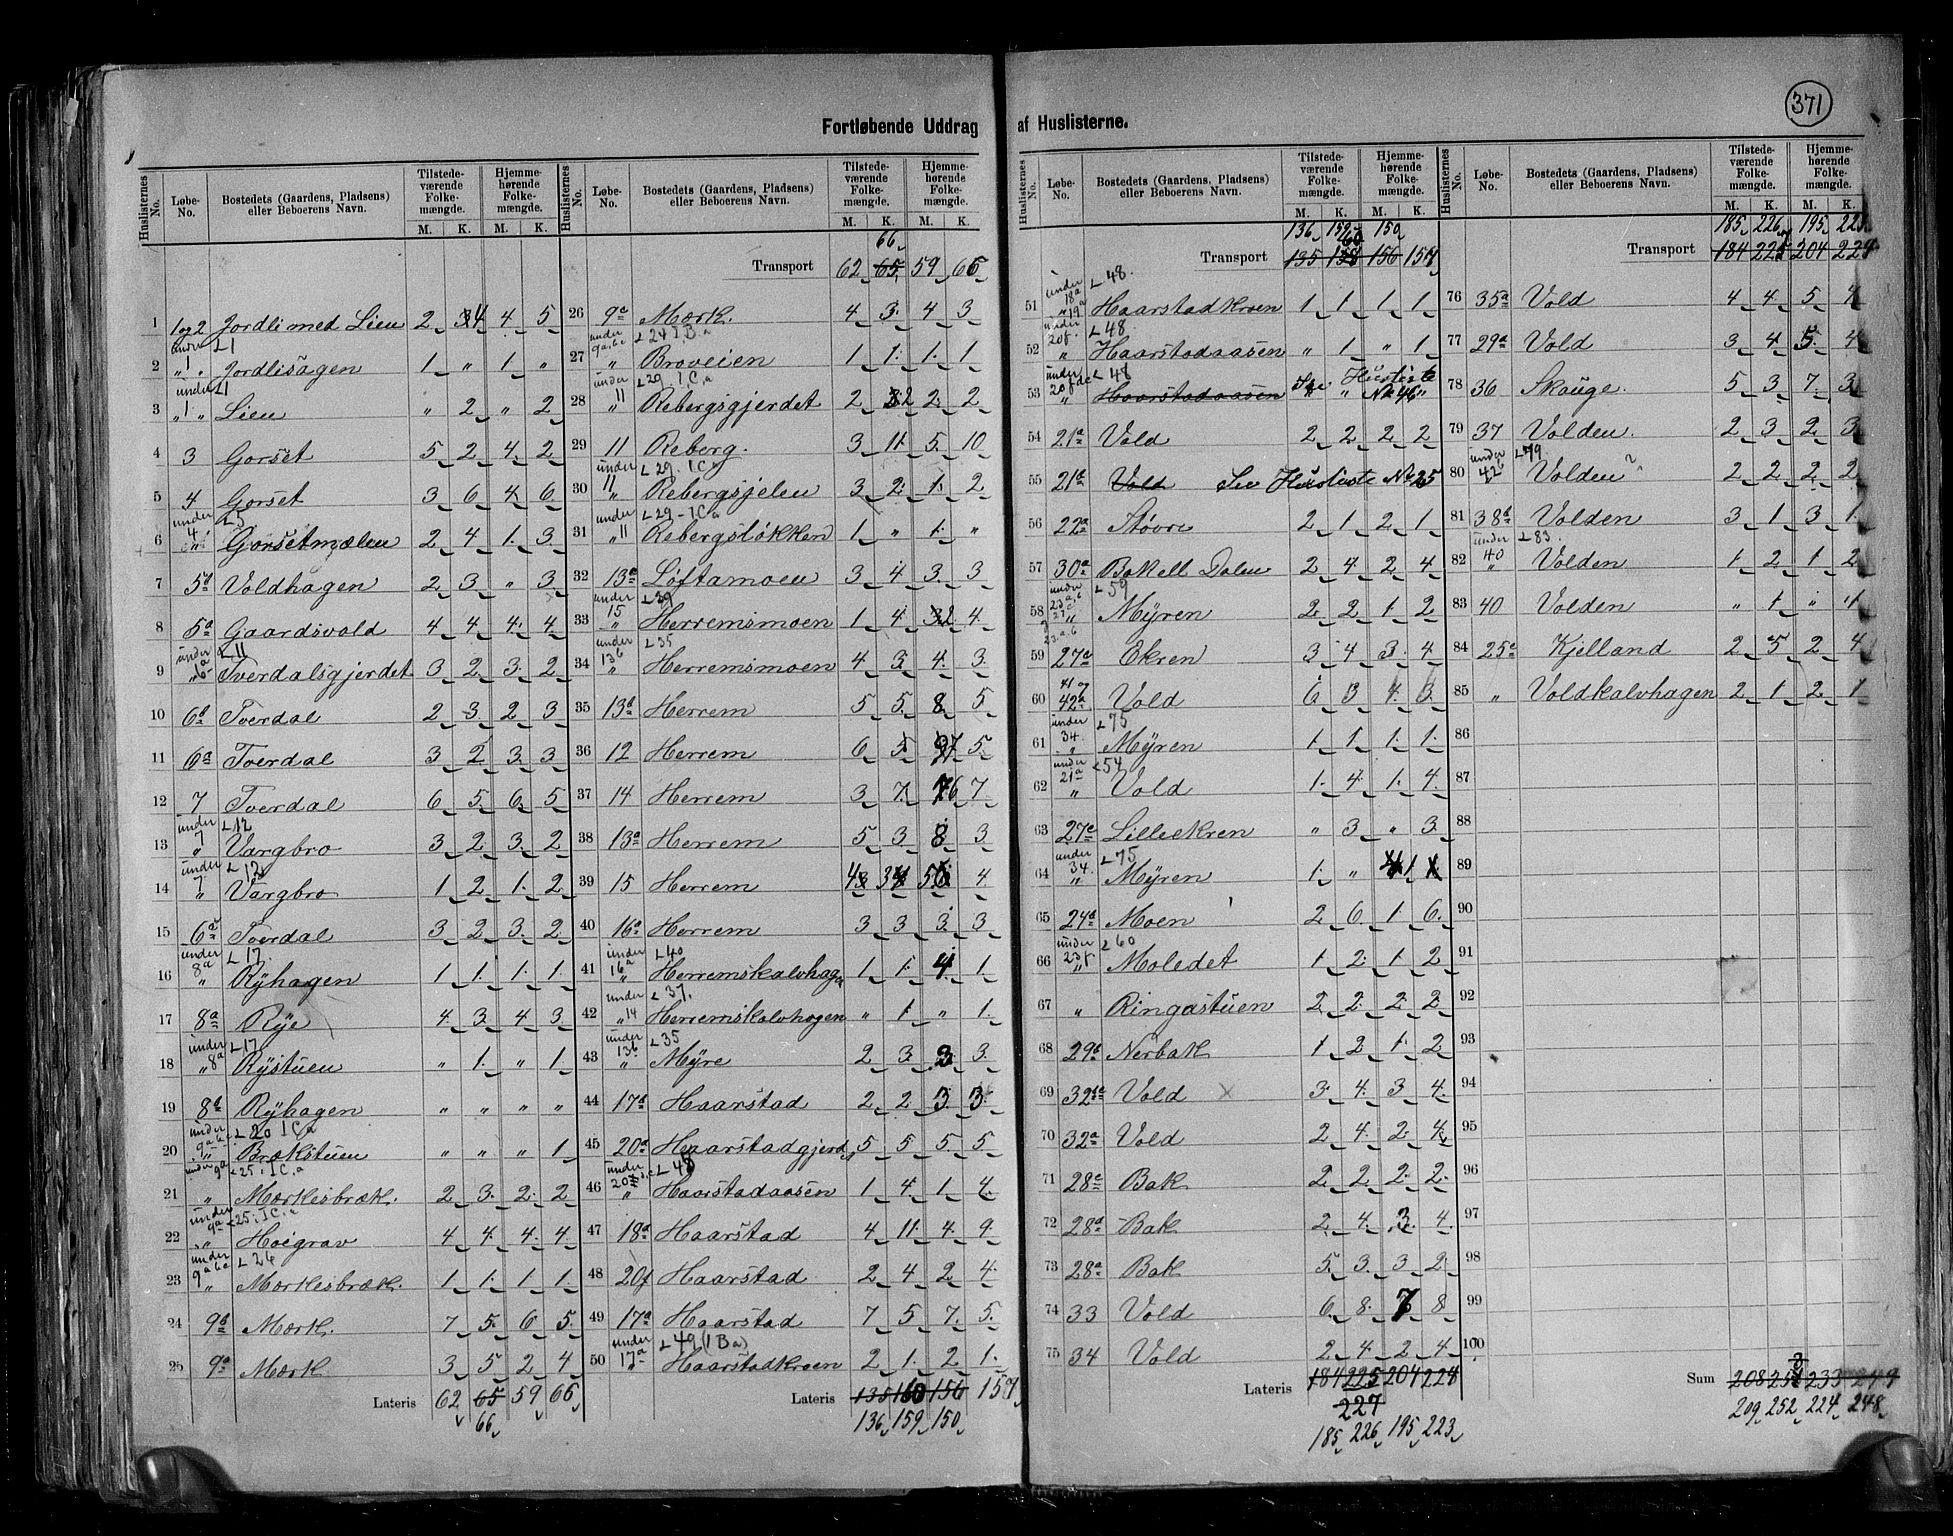 371
Fortløbende Uddrag af Huslisterne.
Huslisternes No. Løbe-No. Bostedets (Gaardens, Pladsens) eller Beboerens Navn. Tilstedeværende Folkemængde. M. K. Hjemmehørende Folkemængde. M. K.
1 1 og 2 Jordli med Lien 2 4 4 5
2 under L1 " 1 " Jordlisagen 1 " 1 "
3 under L1 " 1 " Lien " 2 " 2
4 3 Gorset 5 2 4 2
5 4 Gorset 3 6 4 6
6 under L5 4 " Gorsetmælen 2 4 1 3
7 5b Voldhagen 2 3 " 3
8 5a Gaardsvold 4 4 4 4
9 under L11 Tverdalsgjerdet 3 2 3 2
10 6b Tverdal 2 3 2 3
11 6a Tverdal 3 2 3 3
12 7 Tverdal 6 5 6 5
13 under L12 7 " Vargbro 3 2 3 2
14 under L12 7 " Vargbro 1 2 1 2
15 6a Tverdal 3 2 3 2
16 under L17 8a " Ryhagen 1 1 1 1
17 8a Rye 4 3 4 3
18 under L17 " 8a Rystuen " 1 " 1
19 8b Ryhagen " " " "
20 under L20 I C.a Brækstuen " " " 1
21 under 9a L25 I C.a " Mærkesbræk. 2 3 2 2
22 under 9a L25 I C.a " Hoigrav 4 4 4 4
23 under L24 " Mærkesbræk. 1 1 1 1
24 9b Mærk. 7 5 6 5
25 9a Mærk 3 5 2 4
Lateris 62 65 59 66
66
Huslisternes No. Løbe-No. Bostedets (Gaardens, Pladsens) eller Beboerens Navn. Tilstedeværende Folkemængde. M. K. Hjemmehørende Folkemængde. M. K.
66
Transport 62 65 59 66
26 9c Mærk. 4 3 4 3
27 under L24 I B.a Broveien 1 1 1 1
28 under L29 I C.a 11 " Rebergsgjerdet 2 2 2 2
29 11 Reberg. 3 11 5 10
30 under L29 I C.a 11 " Rebergsjelen 3 2 1 2
31 under L29 - I C.a " 11 Rebergsløkken 1 " 1 "
32 13c Loftamoen 3 4 3 3
33 under L39 15 " Herremsmoen 1 4 2 4
34 under L35 13b " Herremsmoen 4 3 4 3
35 13d Herrem 5 5 8 5
36 12 Herrem 6 5 7 5
37 14 Herrem 3 7 6 7
38 13a Herrem 5 3 8 3
39 15 Herrem 4 3 5 4
40 16a Herrem 3 3 3 3
41 under L40 16a " Herremskalvhag 1 1 4 1
42 under L37 " 14 Herremskalvhagen " 1 " 1
43 under L35 13b " Myre 2 3 3 3
44 17b Haarstad 2 2 3 3
45 20a Haarstadgjerd 5 5 5 5
46 under L48 " Haarstadaasen 1 4 1 4
47 18a Haarstad 4 11 4 9
48 20f Haarstad 2 4 2 4
49 17a Haarstad 7 5 7 5
50 under L49 (I Ba) 17a " Haarstadkroen 2 1 2 1
Lateris 135 160 156 157
136 159 150
Huslisternes No. Løbe-No. Bostedets (Gaardens, Pladsens) eller Beboerens Navn. Tilstedeværende Folkemængde. M. K. Hjemmehørende Folkemængde. M. K.
136 159 150
Transport 135 158 156 157
51 under L48 18a " 19 Haarstadkroen 1 1 1 1
52 under L48 20f. " Haarstadaasen " 1 " 1
53 under L48 " Haarstadaasen See Husliste No 46
54 21a Vold 2 2 2 2
55 21a Vold See Husliste No 25
56 22a Støvre 2 1 2 1
57 30a Bak ell Dalen 2 4 2 4
58 under L59 " Myren 2 2 1 2
59 27a Ekren 3 4 3 4
60 41 og 42a Vold 6 3 4 3
61 under L75 34. " Myren 1 1 1 1
62 under L54 21a " Vold 1 4 1 4
63 27c Lilleekren " 3 " 3
64 under L75 34. " Myren 1 " 1
65 24a Moen 2 6 1 6
66 under L60 23f. " Moledet 1 2 1 2
67 " Ringastuen 2 2 2 2
68 29b Nerbak 1 2 1 2
69 Vold 3 4 3 4
70 32a Vold 2 4 2 4
71 28c Bak 2 2 2 2
72 28d Bak 2 4 3 4
73 28a Bak 5 3 3 2
74 33 Vold 6 8 7 8
75 34 Vold 2 4 2 4
Lateris 184 225 204 228
227
185 226 195 223
Huslisternes No. Løbe-No. Bostedets (Gaardens, Pladsens) eller Beboerens Navn. Tilstedeværende Folkemængde. M. K. Hjemmehørende Folkemængde. M. K.
185 226 195 223
Transport 184 227 204 224
76 35a Vold 4 4 5 4
77 29a Vold 3 4 5 4
78 36 Skauge. 5 3 7 3
79 37 Volden. 2 3 2 3
80 under L79 42b Volden 2 2 2 2
81 38b Volden 3 1 3 1
82 under L83. 40 " Volden 1 2 1 2
83 40 Volden " 1 " 1
84 25c Kjelland 2 5 2 4
85 " Voldkalvhagen 2 1 2 1
86
87
88
89
90
91
92
93
94
95
96
97
98
99
100
Sum 208 233
209 252 224 248